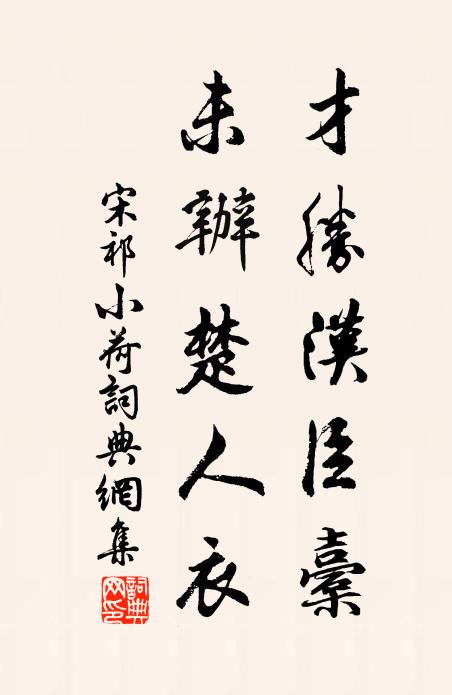 才勝漢臣橐
未辦楚人衣
宋祁小荷詞典網集
詞典網印